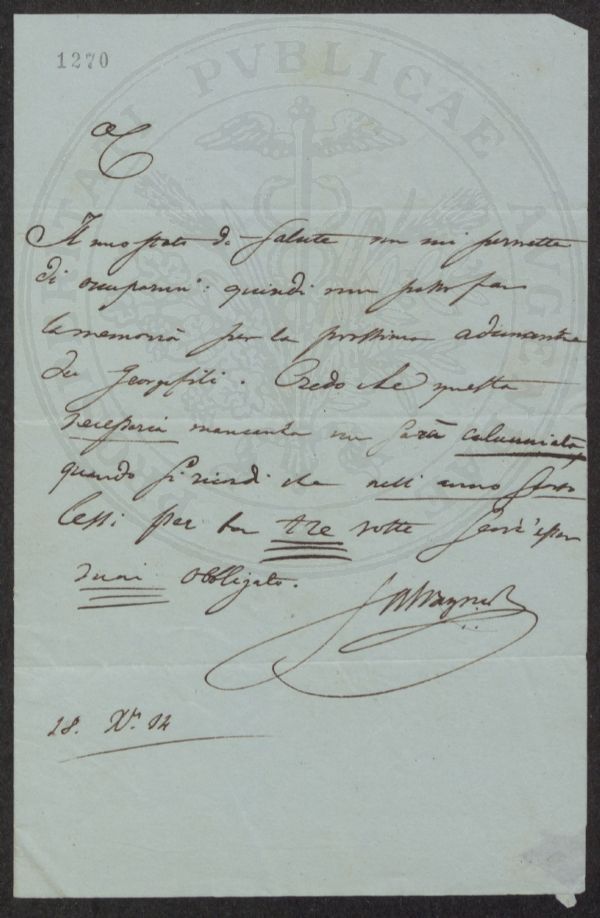 1270
PVBLICAE
C
Il mio stato di salute non mi permette
di occuparmi: quindi non posso far
la memoria per la prossima adunanza
dei Georgofili. Credo che questa
necessaria mancanza non sarà calunniata,
quando si ricordi che nell'anno scorso
lessi per ben tre volte senz'esser
obbligato.
Salvagnoli
28. Xbre